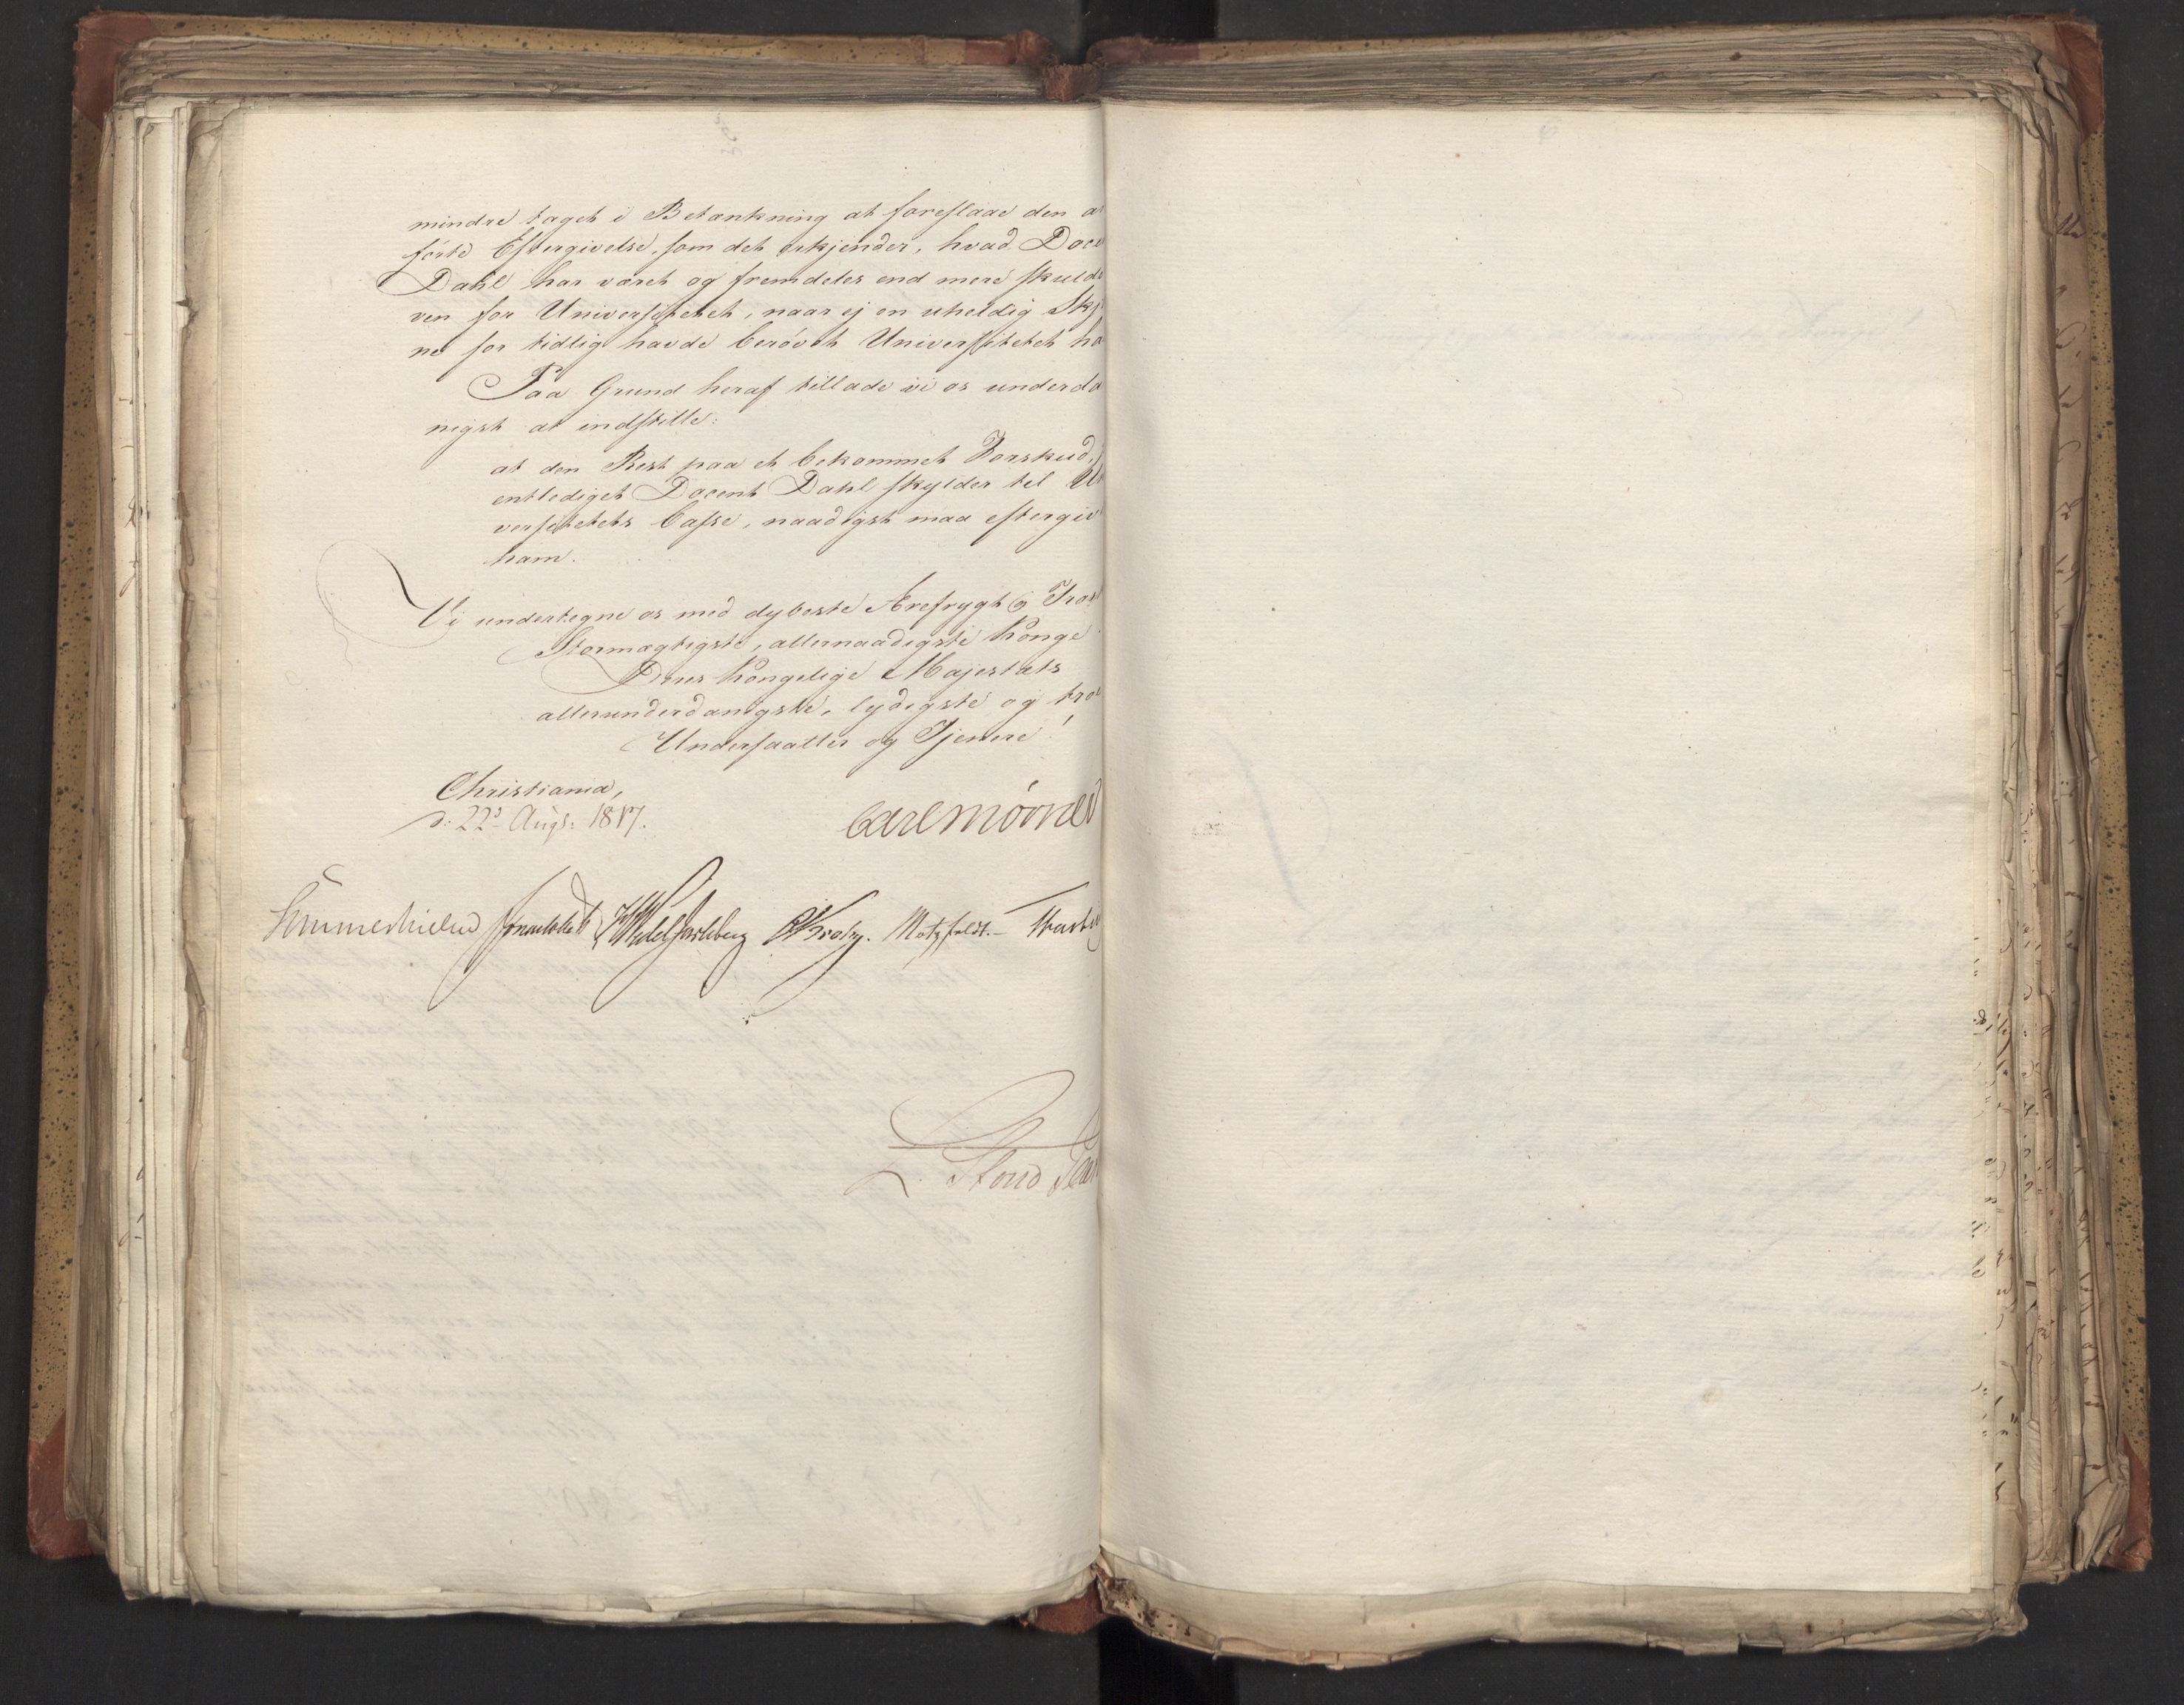 mindre taget i Betænkning at foreslaae den a
förte Eftergivelse, som det erkjender, hvad Doce
Dahl har været og fremdeles end mere skulde
ven for Universitetet, naar ej en uheldig Skj
ne for tidlig havde berövet Universitetet ha
Paa Grund heraf tillade vi os underda
nigst at indstille:
at den Rest paa et bekommet Forskud,
entlediget Docent Dahl skylder til Un
versitetets Casse, naadigst maa eftergiv
ham.
Vi undertegne os med dybeste Ærefrygt og Tros
Stormægtigste, allernaadigste Konge
Deres Kongelige Majestæts
allerunderdanigste, lydigste og tro
Undersaatter og Tjenere!
Christiania,
d: 22de Augs: 1817.
Carl Mörner
Sommerhielm Wedel Jarlsberg Krohg. Motzfeldt.